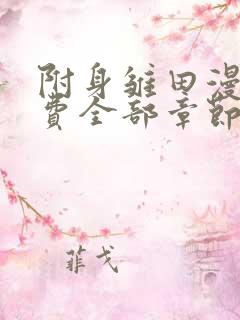 附身雏田漫
费全部章节
菲戈